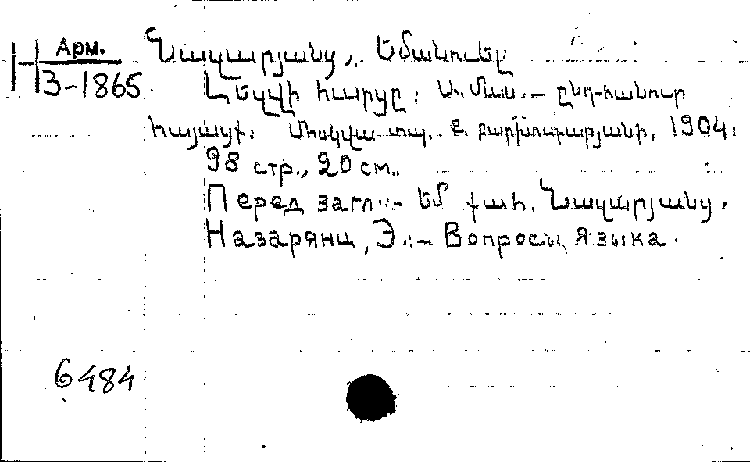 Арм.
Н 3-1865
Նազարյանց, Եմանուել
Լեզվի հարցը. Ա. մաս.— ընդհանուր
հայացք. Մոսկվա. տպ. 1904.
98 стр., 20 см.
Перед загл.:— Եմ. Նազարյանց.
Назарянц, Э.:— Вопросы языка.
6484